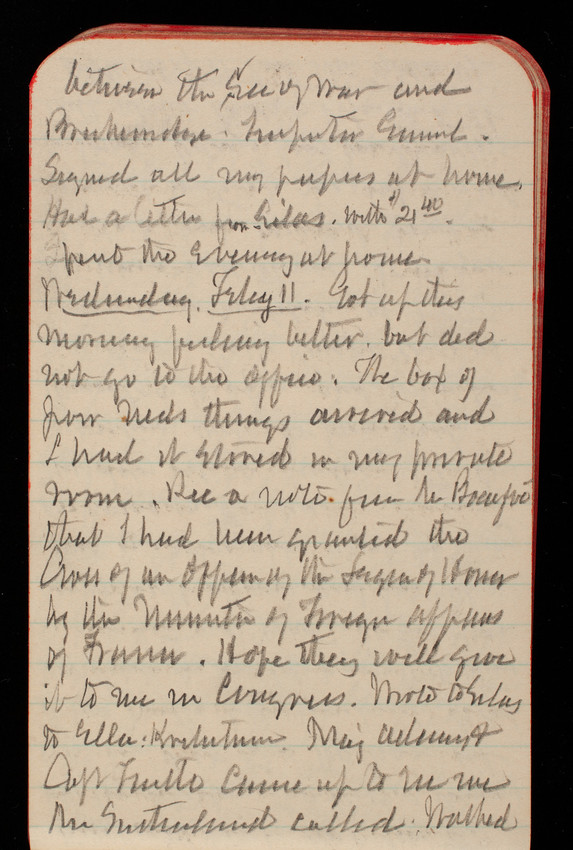 between the Sec of War and
Breckenridge. Inspector General.
Signed all my papers at home.
Had a letter from Silas. with $21 40.
Spent the Evening at home
Wednesday. Feby 11. Got up this
morning feeling better. but did
not go to the office. The box of
poor Neds things arrived and
I had it stored in my private
room. Rec a note from Mr
that I had been granted the
Cross of an Officer of the Legion of Honor
by the Minister of Foreign affairs
of France. Hope they will give
it to me in Congress. Wrote to Silas
to Ella. May Adams &
Capt came up to see me
Mr called. Walked